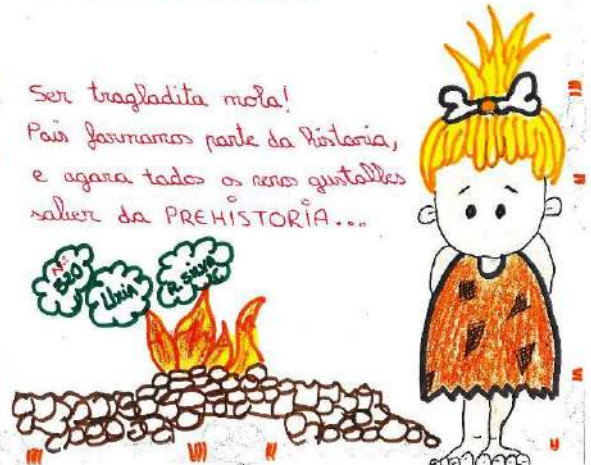 Ser troglodita mola!
Pois formamos parte da historia,
e agora todos os nenos gustalles
saber da PREHISTORIA...
Uxía
R. SILVA